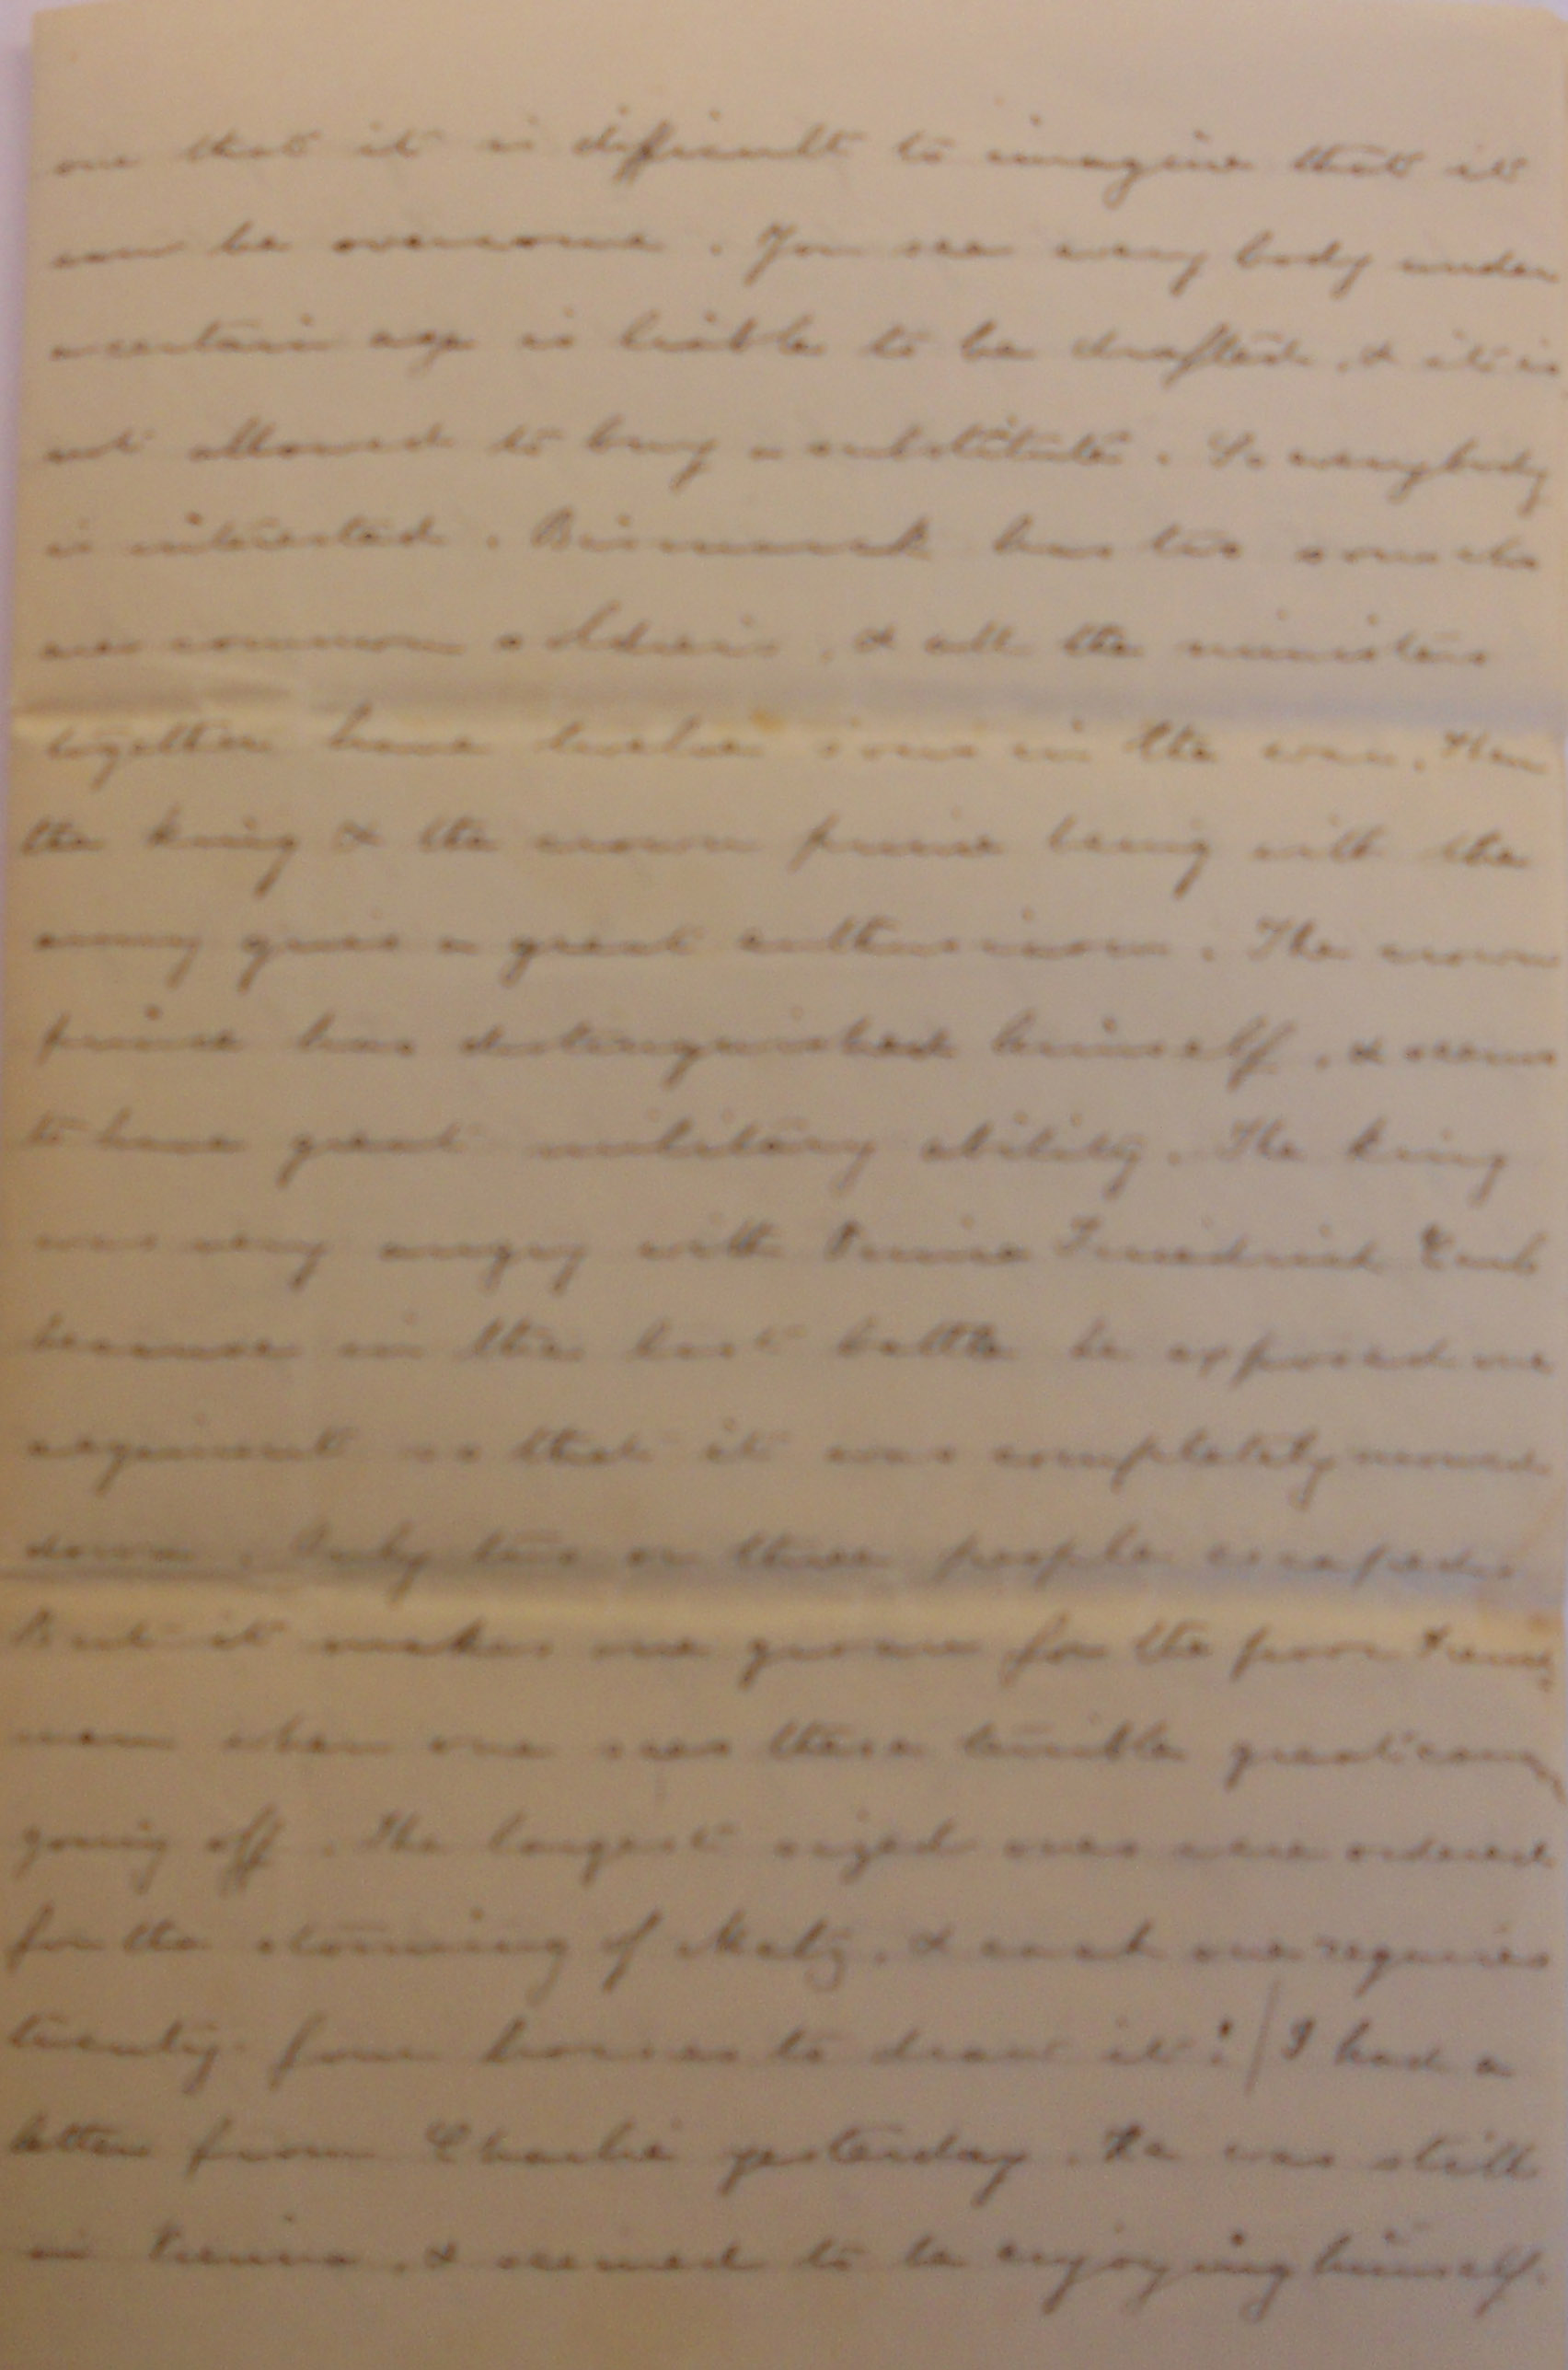 one that it is difficult to imagine that it
can be overcome. You see every body under
a certain age is liable to be drafted, & it is
not allowed to buy a substitute. So everybody
is interested. Bismarck has two sons who
are common soldiers, & all the ministers
together have twelve sons in the war. Then
the king & the crown prince being with the
army gives a great enthusiasm. The crown
prince has distinguished himself, & seems
to have great military ability. The king
was very angry with Prince Friedrich Carl
because in the last battle he exposed one
regiment so that it was completely mowed
down. Only two or three people escaped.
But it makes one groan for the poor French
men when one sees these terrible great cannon
going off. The largest sized ones were ordered
for the storming of Metz, & each one requires
twenty-four horses to draw it! I had a
letter from Charlie yesterday. He was still
in Vienna, & seemed to be enjoying himself.